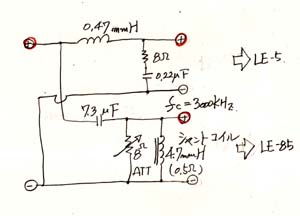 0.47mmH
+
+
8Ω
0.22μF
⇨LE-5.
−
fc=3000kHz
7.3μF
+
シャントコイル
8Ω
4.7mmH
⇨LE-85
(0.5Ω)
ATT
−
−